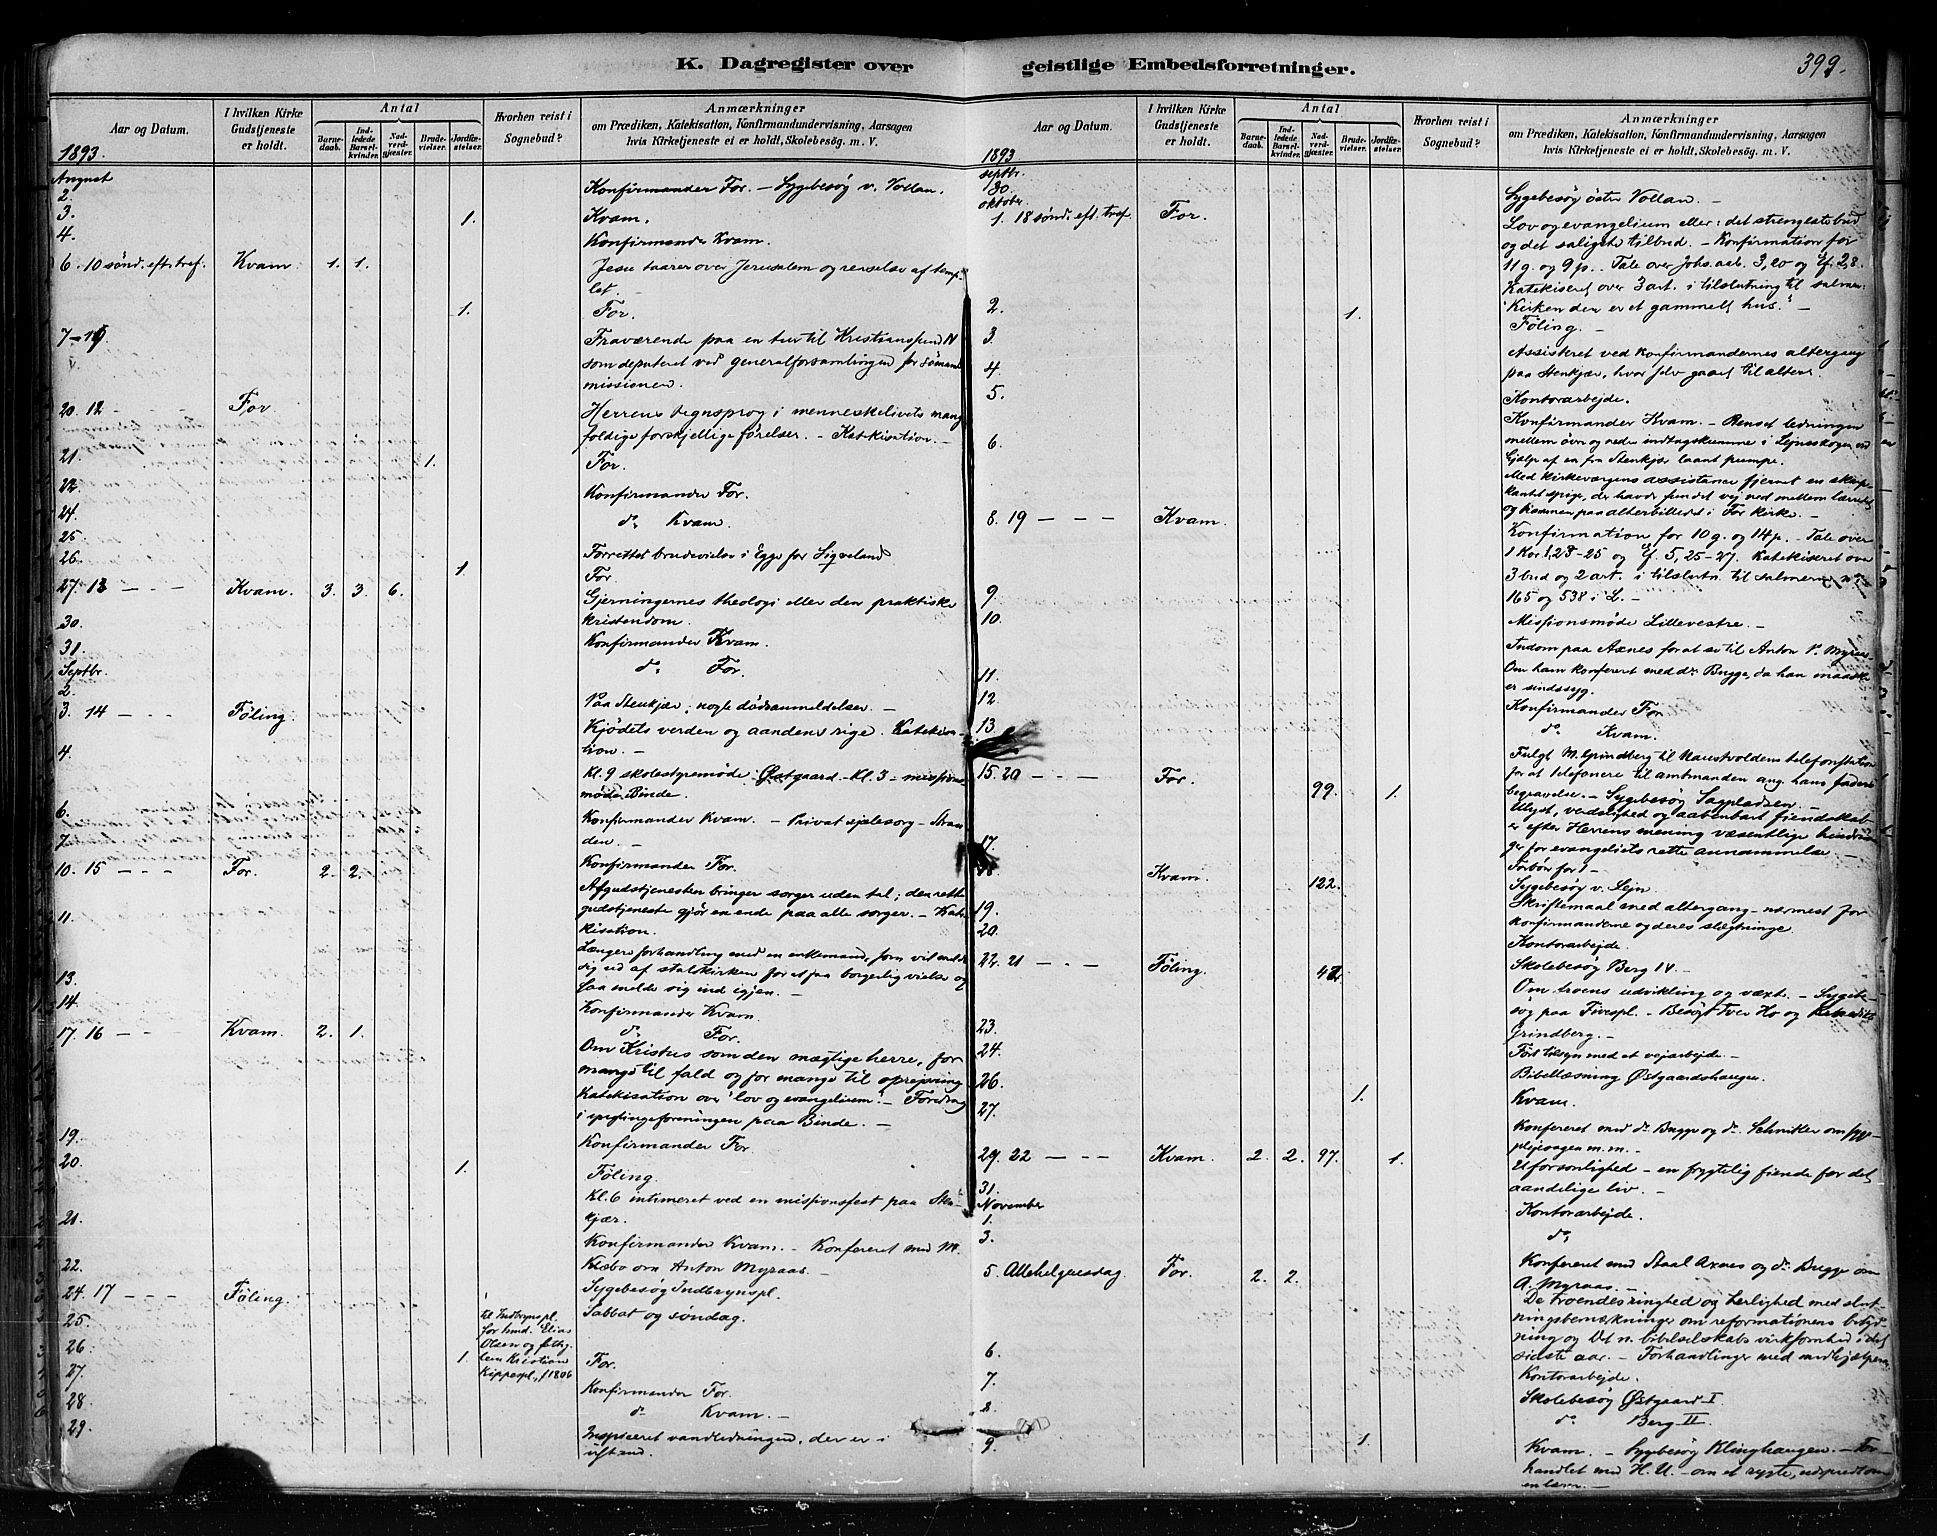 K. Dagregister over geistlige Embedsforretninger.
399.
Aar og Datum.
I hvilken Kirke Gudstjeneste er holdt.
Antal
Barnedaab.
Indledede Barselkvinder.
Nadverdgjæster.
Brudevielser.
Jordfæstelser.
Hvorhen reist i Sognebud?
Anmærkninger
om Prædiken, Katekisation, Konfirmandundervisning, Aarsagen
hvis Kirketjeneste ei er holdt, Skolebesøg. m. V.
1893.
August
2. Konfirmander For. – Sygebesøg v. Vollan.
3. 1. Kvam.
4. Konfirmander Kvam.
6. 10 sönd. eft. tref. Kvam. 1. 1. Jesu taarer over Jerusalem og renselse af temp-
let. –
1. For.
7–19. Fraværende paa en tur til Kristianssund N
som deputeret ved generalforsamlingen for sömands
missionen.
20. 12 – – – For. Herrens tegnsprog i menneskelivets mang
foldige forskjellige förelser. – Katekisation. –
21. 1. For.
22. Konfirmander For.
24. do Kvam.
25.
26. Forrettet brudevielse i Egge for Sigveland
1. For.
27. 13 – – – Kvam. 3. 3. 6. Gjerningernes theologi eller den praktiske
kristendom.
30. Konfirmander Kvam.
31. do For.
Septbr.
2. Paa Stenkjær; nogle dödsanmeldelser. –
3. 14 – – – Føling. Kjödets verden og aandens rige. Katekisa-
tion. –
4. Kl. 9 skolestyremöde Østgaard – Kl. 3 – missions
möde Binde.
6. Konfirmander Kvam. – Privat sjelesorg – Stran
den. –
7. Konfirmander For.
10. 15 – – – For. 2. 2. Afgudstjenesten bringer sorger uden tal; den rette
gudstjeneste gjör en ende paa alle sorger. – Kate
kisation.
11. Længere forhandling med en enkemand, som vil melde
sig ud af statskirken for at faa borgerlig vielse og
saa melde sig ind igjen. –
13. Konfirmander Kvam.
14. do For.
17. 16 – – – Kvam. 2. 1. Om Kristus som den mægtige herre, for
mange til fald og for mange til opreisning
Katekisation over "lov og evangelium". – Foredrag
i ynglingeforeningen paa Binde. –
19. Konfirmander For
20. 1. Føling.
Kl. 6 intimeret ved en missionsfest paa Sten-
kjær.
21. Konfirmander Kvam. – Konfereret med M.
Klæbo om Anton Myraas. –
22. Sygebesøg Indbrynspl.
24. 17 – – – Føling. Sabbat og søndag.
til Indbrynspl.
for hmd. Elias
Olsen og
Kristian
Kippespl, f 1806
25.
26. 1. For.
27. Konfirmander For.
28. do Kvam. –
29. Inspiceret vandledningen, der er i
ustand.
1893
Septbr.
30. Sygebesøg östre Vollan. –
Oktober
1. 18 sönd. eft. tref. For. Lov og evangelium eller: det strengeste bud
og det saligste tilbud. – Konfirmation for
11 g. og 9 p. Tale over Johs. aab. 3,20 og Ef. 2,8.
Katekiseret over 3 art. i tilslutning til salmen:
"Kirken den er et gammelt hus." –
2. 1. Føling. –
3. Assisteret ved konfirmandernes altergang
paa Stenkjær, hvor selv gaaet til alters.
4. Kontorarbejde.
5. Konfirmander Kvam. – Renset ledningen
mellem övre og nedre indtagskumme i Lejnsskogen ved
hjælp af en fra Stenkjær laant pumpe.
6. Med kirkeværgens assistance fjernet en skarp
kantet spige, der havde fundet vej ned mellem lærredet
og rammen paa alterbilledet i For kirke. –
8. 19 – – – Kvam. Konfirmation for 10 g. og 14 p. – Tale over
1 Kor. 1, 23–25 og Ef. 5, 25–27. Katekiseret over
3 bud og 2 art. i tilslutn. til salmerne
165 og 538 i L. –
9. Missionsmöde Lillevestre. –
10. Indom paa Axnes for at se til Anton P. Myraas.
Om ham konfereret med dr Bugge, da han maaske
er sindssyg.
11. Konfirmander For
12. do Kvam.
13. Fulgt M. Grindberg til Naustvoldens telefonstation
for at telefonere til amtmanden ang. hans faders
begravelse. – Sygebesøg Sagpladsen. –
15. 20 – – – For. 99. 1. Ulyst, verdslighed og aabenbart fiendskab
er efter Herrens mening væsentlige hindrin
ger for evangeliets rette annammelse –
Forbön for 1 –
17. Sygebesøg v. Lejn.
18. Kvam. 122. Skriftemaal med altergang – nærmest for
konfirmanderne og deres slægtninge.
19. Kontorarbejde.
20. Skolebesøg Berg 14. –
22. 21 – – – Føling. 42. Om troens udvikling og væxt. – Sygebe-
søg paa Fivespl. – Besøgt Iver Ho og
Grindberg. –
23. Ført tilsyn med et vejarbejde. –
24. Bibellæsning Østgaardshaugen.
26. 1. Kvam.
27. Konfereret med dr Bugge og dr Schnitler om syge-
plejesagen m.m. –
29. 22 – – – Kvam. 2. 2. 97. 1. Uforsonlighed – en frygtelig fiende for det
aandelige liv. –
31. Kontorarbejde.
November
1. do
3. Konfereret med Staal Axnes og dr Bugge om
A. Myraas. –
5. Allehelgensdag. For. 2. 2. De troendes ringhed og herlighed med slut-
ningsbemærkninger om reformationens betyd-
ning og Det n. bibelselskabs virksomhed i det
sidste aar. – Forhandlinger med medhjælperne
6. Kontorarbejde.
7. Skolebesøg Østgaard I
8. do Berg II.
9. 1. Kvam. – Sygebesøg Klinghaugen. – For-
handlet med H. U. – om et rygte, udspredt om
en lærer. –